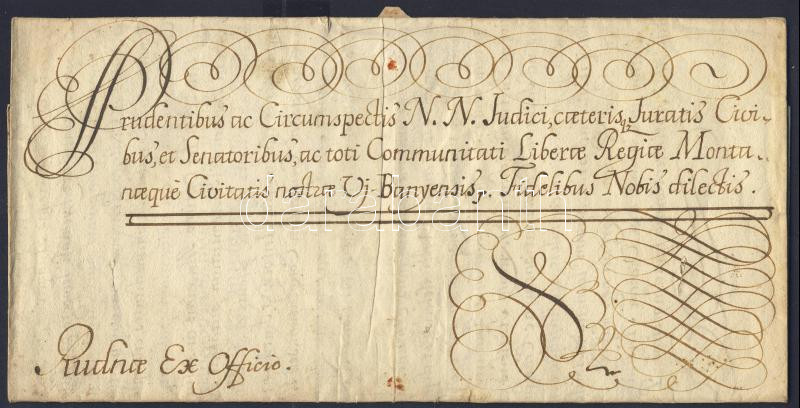 Prudentibus ac Circumspectis N. N. Judici, cæteris, Juratis Civi-
bus, et Senatoribus, ac toti Communitati Liberæ Regiæ Monta-
næquè Civitatis nostræ Uj-Banyensis, Fidelibus Nobis dilectis.
darabanth
Ex Officio.